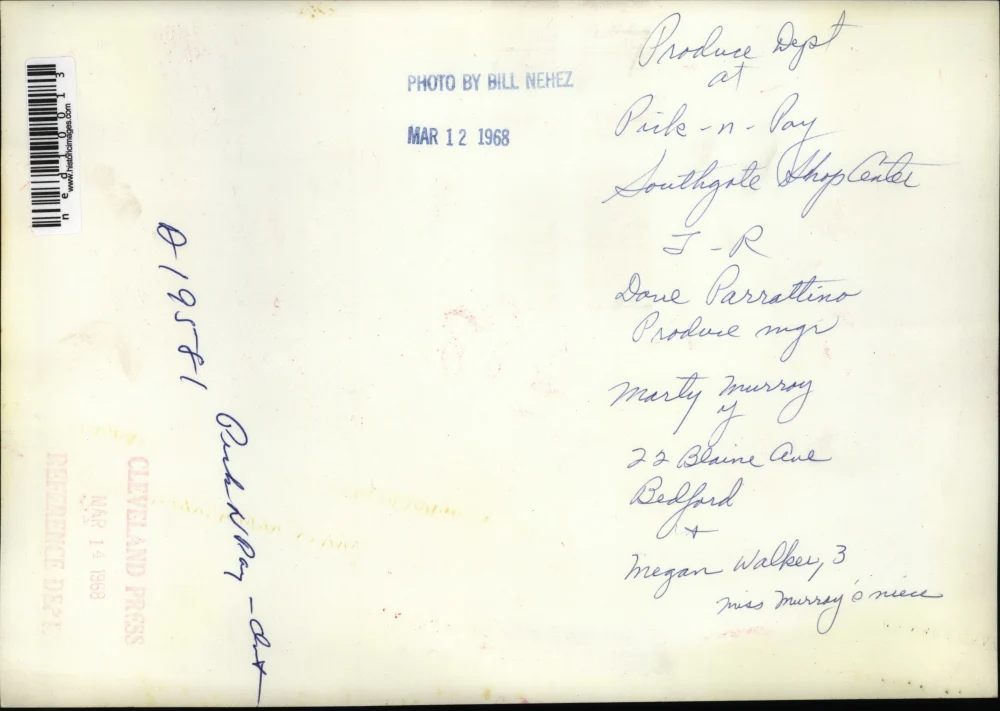 Produce Dept
at
Pick-n-Pay
Southgate Shop Center
J-R
Dave Parrattino
Produce mgr
Marty Murray
y
22 Blaine Ave
Bedford
+
Megan Walker, 3
Miss Murray's niece
PHOTO BY BILL NEHEZ
MAR 12 1968
www.historicimages.com
19581
Pick N Pay - Int
CLEVELAND PRESS
MAR 14 1968
REFERENCE DEPT.